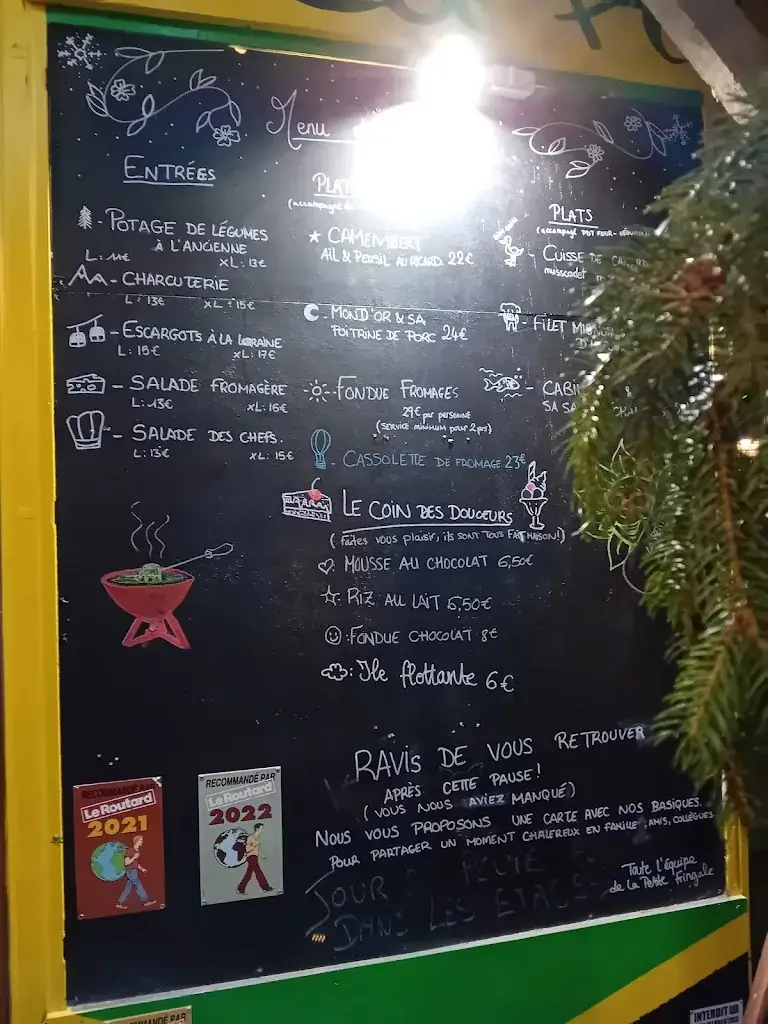 Menu
ENTRÉES
POTAGE DE LÉGUMES
À L'ANCIENNE
L: 11€ XL: 13€
- CHARCUTERIE
L: 13€ XL: 15€
- ESCARGOTS À LA LORRAINE
L: 15€ XL: 17€
- SALADE FROMAGÈRE
L: 13€ XL: 16€
- SALADE DES CHEFS.
L: 13€ XL: 15€
(accompagné de
CAMEMBERT
AIL & PERSIL AU RICARD. 22€
MOND'OR & SA
POITRINE DE PORC 24€
FONDUE FROMAGES
29€ par personne
(SERVICE MINIMUM POUR 2 prs)
- CASSOLETTE DE FROMAGE 23€
PLATS
(accompagné PDT FOUR-
CUISSE DE
muscadet
- FILET
-
SA
LE COIN DES DOUCEURS
(faites vous plaisir, ils sont TOUS FAIT MAISON!)
MOUSSE AU CHOCOLAT 6,50€
: RIZ AU LAIT 5,50€
: FONDUE CHOCOLAT 8€
: Ile flottante 6€
RAVIS DE VOUS RETROUVER
APRÈS CETTE PAUSE!
(VOUS NOUS AVIEZ MANQUÉ)
NOUS VOUS PROPOSONS UNE CARTE AVEC NOS BASIQUES.
POUR PARTAGER UN MOMENT CHALEREUX EN FAMILLE, AMIS, COLLÈGUES
Toute l'équipe
de la Petite Fringale
JOUR
DANS LES
RECOMMANDÉ PAR
Le Routard
2021
RECOMMANDÉ PAR
Le Routard
2022
RECOMMANDÉ PAR
INTERDIT